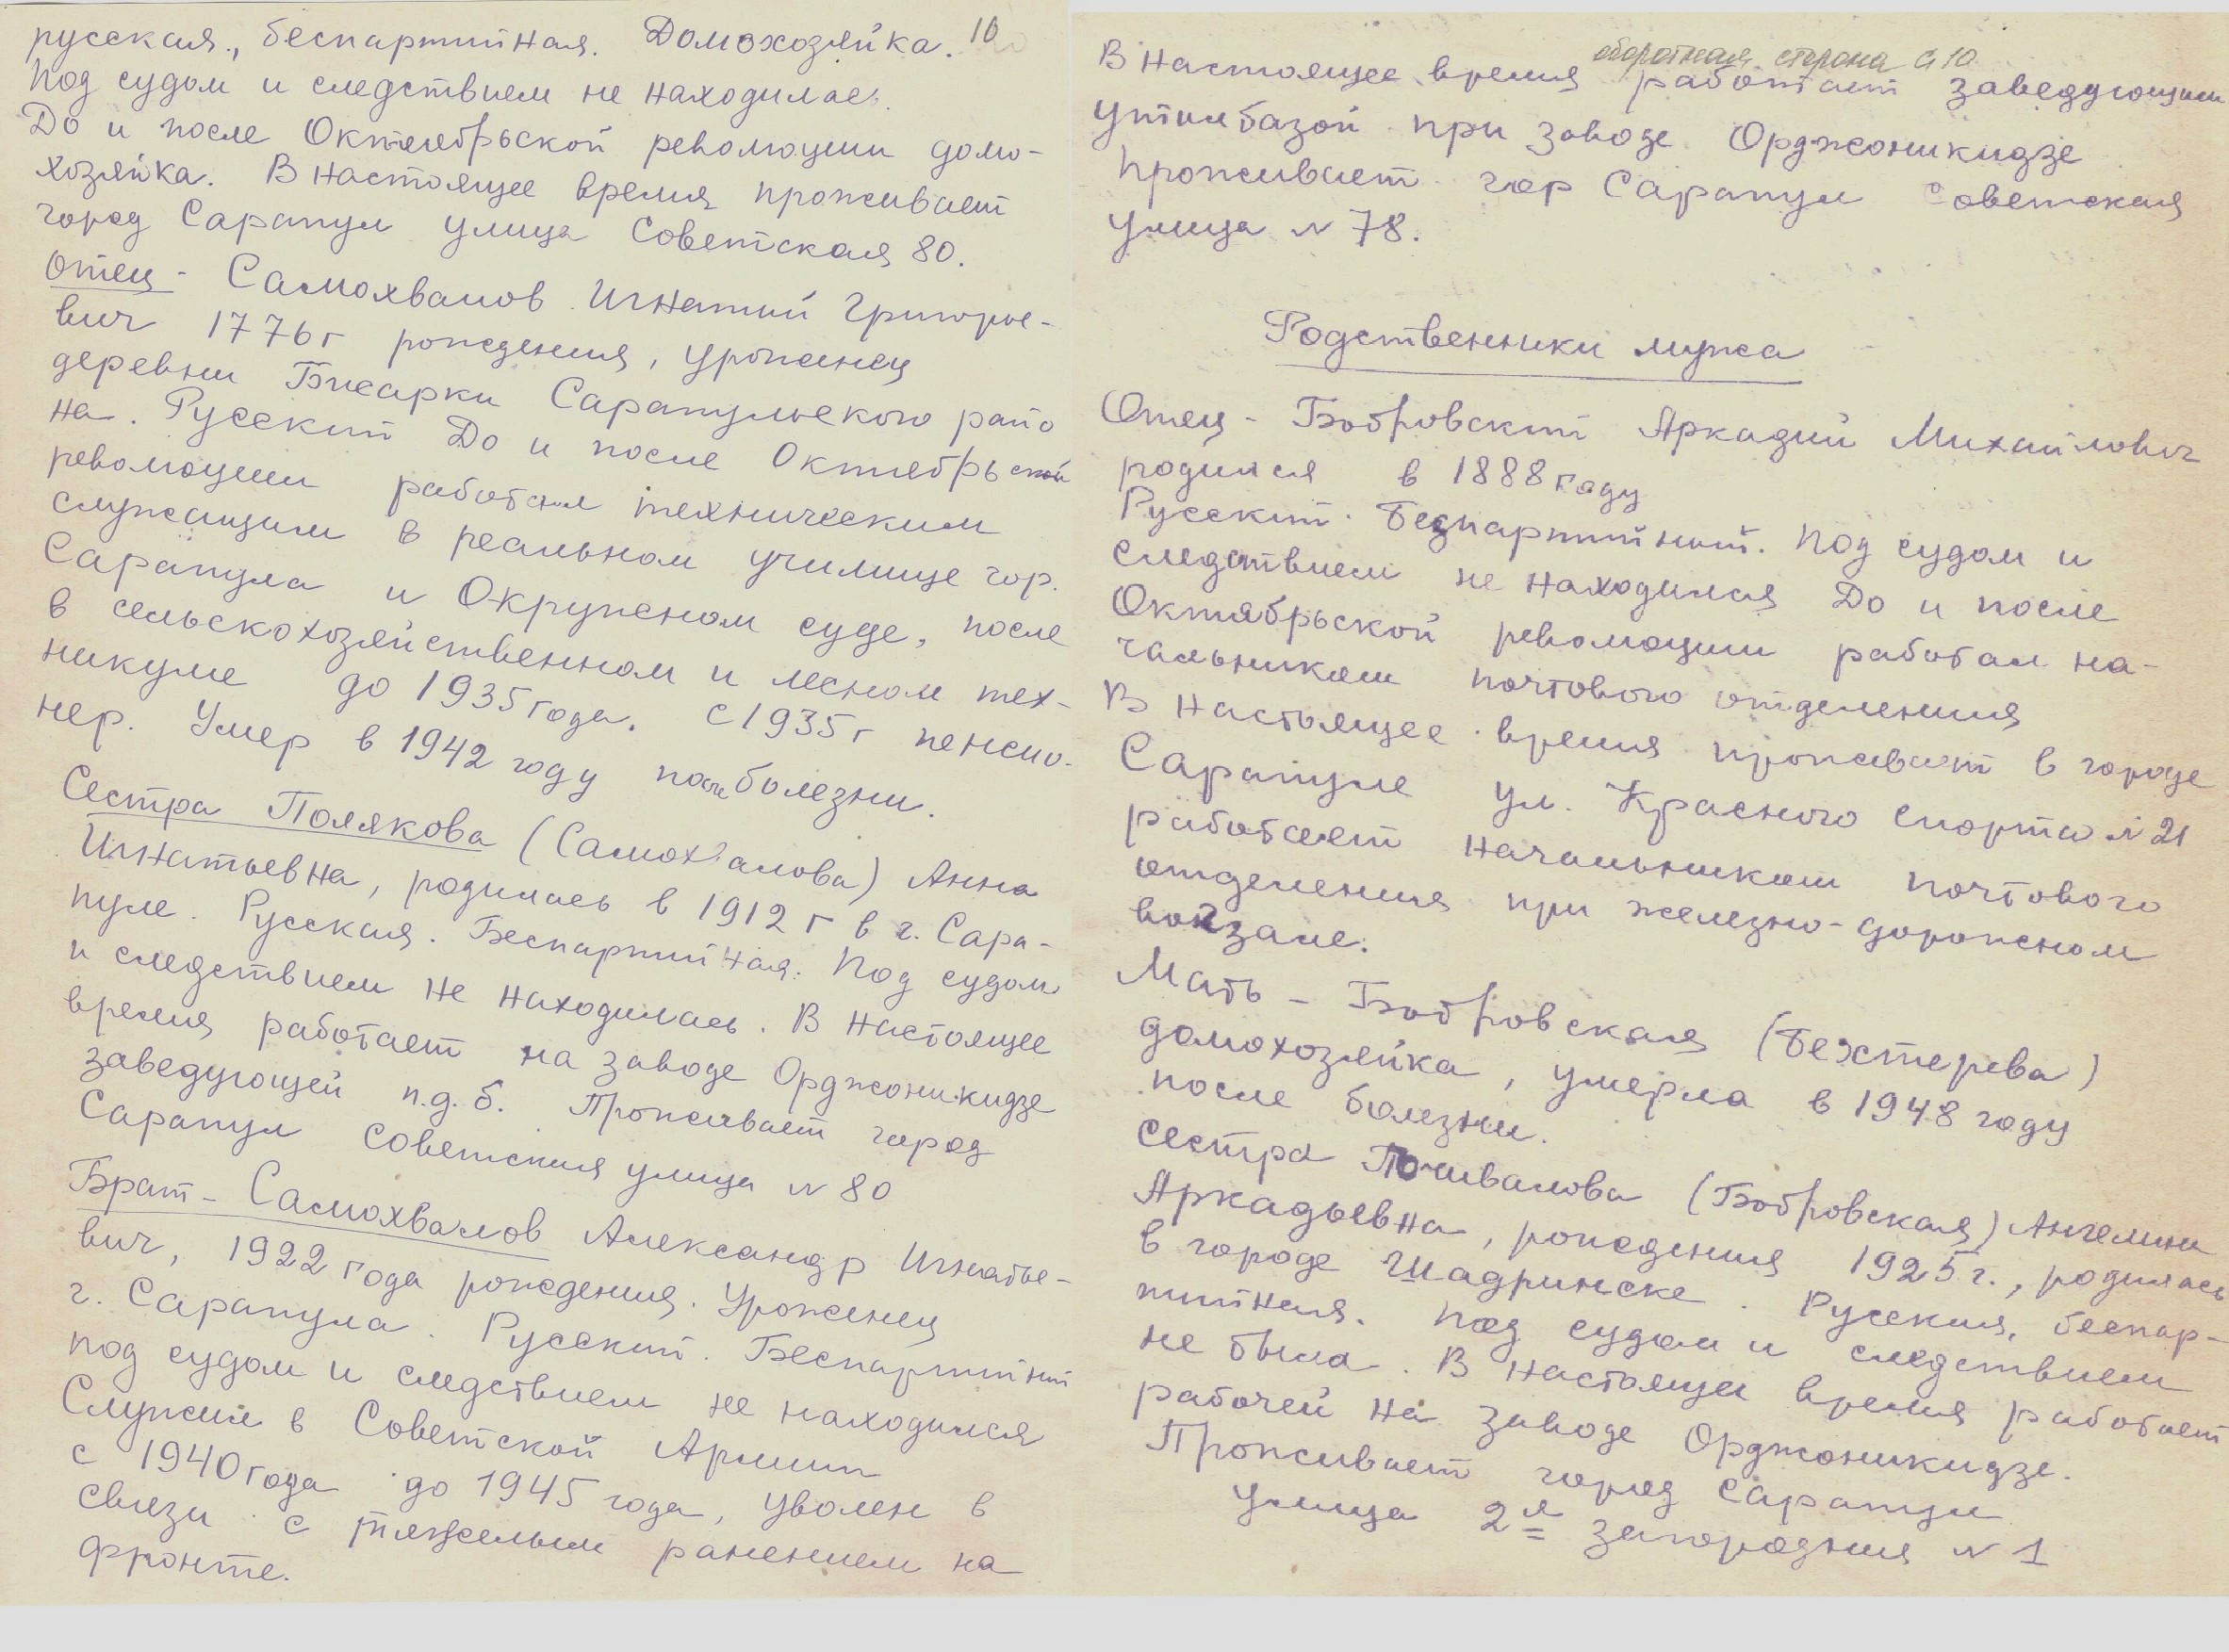 русская, беспартийная. Домохозяйка. 10
Под судом и следствием не находилась.
До и после Октябрьской революции домо-
хозяйка. В настоящее время проживает
город Сарапул улица Советская 80.
Отец - Самохвалов Игнатий Григорье-
вич 1776 г рождения, уроженец
деревни Бисарки Сарапульского райо
на. Русский До и после Октябрьской
революции работал техническим
служащим в реальном училище гор.
Сарапула и Окружном суде, после
в сельскохозяйственном и лесном тех-
никуме до 1935 года. С 1935 г пенсио-
нер. Умер в 1942 году после болезни.
Сестра Полякова (Самохвалова) Анна
Игнатьевна, родилась в 1912 г в г. Сара-
пуле. Русская. Беспартийная. Под судом
и следствием не находилась. В настоящее
время работает на заводе Орджоникидзе
заведующей п.д.б. Проживает город
Сарапул Советская улица N 80
Брат - Самохвалов Александр Игнатье-
вич, 1922 года рождения. Уроженец
г. Сарапула. Русский. Беспартийный
под судом и следствием не находился
Служил в Советской Армии
с 1940 года до 1945 года, уволен в
связи с тяжелым ранением на
фронте.
оборотная сторона С 10
В настоящее время работает заведующим
утильбазой при заводе Орджоникидзе
Проживает гор Сарапул Советская
улица N 78.
Родственники мужа
Отец - Бобровский Аркадий Михайлович
родился в 1888 году
Русский. Беспартийный. Под судом и
следствием не находился До и после
Октябрьской революции работал на-
чальником почтового отделения
В настоящее время проживает в городе
Сарапуле ул. Красного спорта N 21
работает начальником почтового
отделения при железно-дорожном
вокзале.
Мать - Бобровская (Бехтерева)
домохозяйка, умерла в 1948 году
после болезни.
Сестра Пошивалова (Бобровская) Ангелина
Аркадьевна, рождения 1925 г., родилась
в городе Шадринске. Русская, беспар-
тийная. Под судом и следствием
не была. В настоящее время работает
рабочей на заводе Орджоникидзе.
Проживает город Сарапул
улица 2я загородная N 1